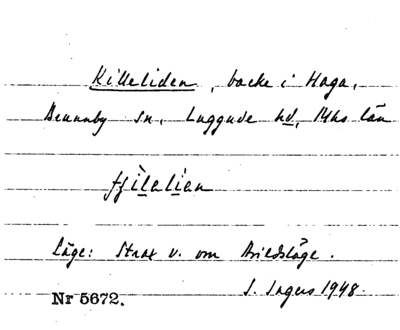 Killeliden, backe i Haga,
Brunnby sn, Luggude hd, Mhs län
fjìlelìen
Läge: Strax v. om Arildsläge.
S. Ingers 1948.
Nr 5672.